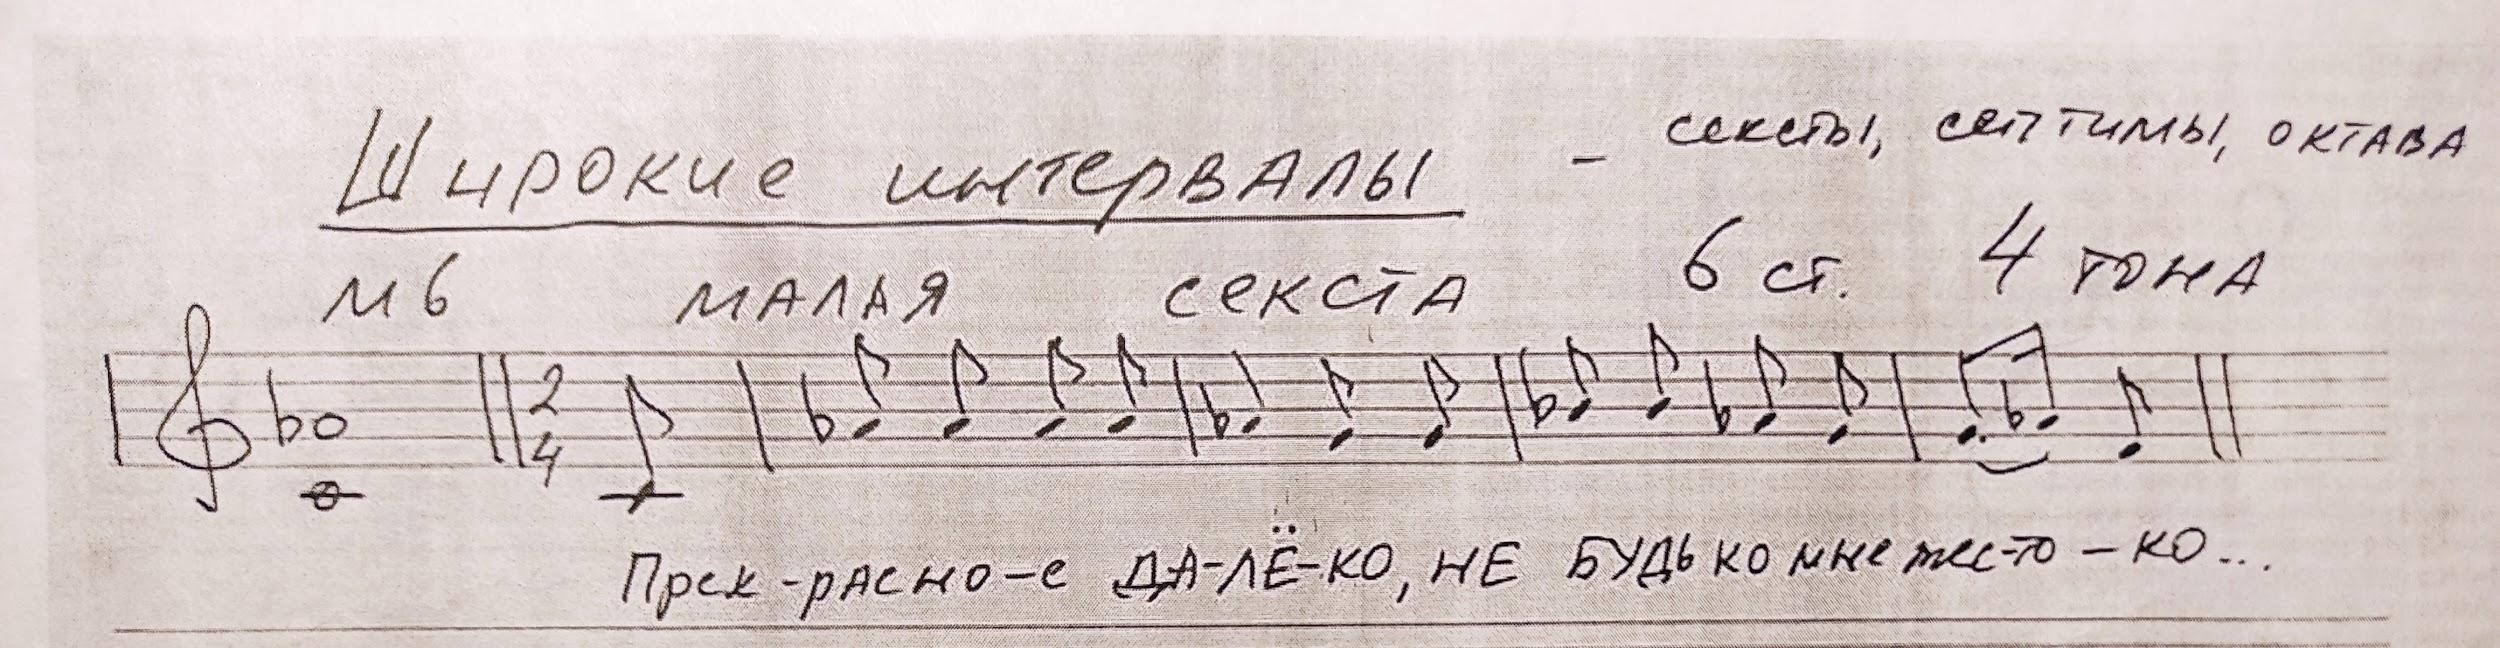 Широкие интервалы - сексты, септимы, октава
м6 малая секста 6 ст. 4 тона
2
4
Прек-расно-е ДА-ЛЁ-КО, НЕ БУДЬ КО мне жес-то-ко...